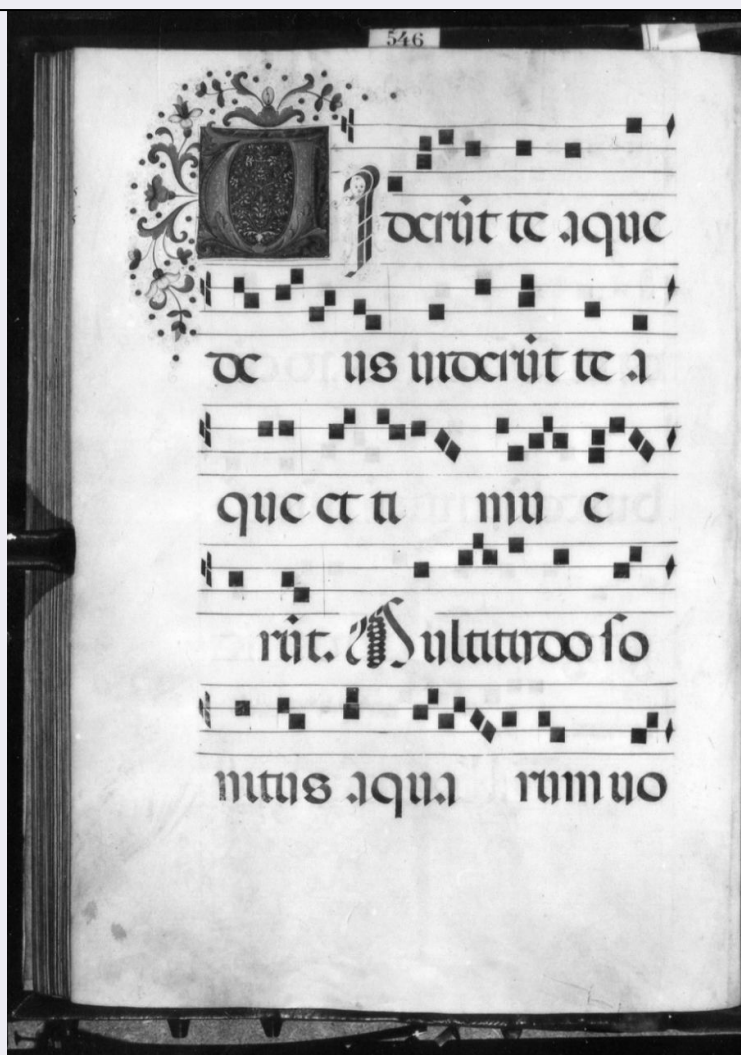 546
VIderūt te aque
de us uiderūt te a
que et ti mu e
rūt. Multitudo so
nitus aqua rum uo